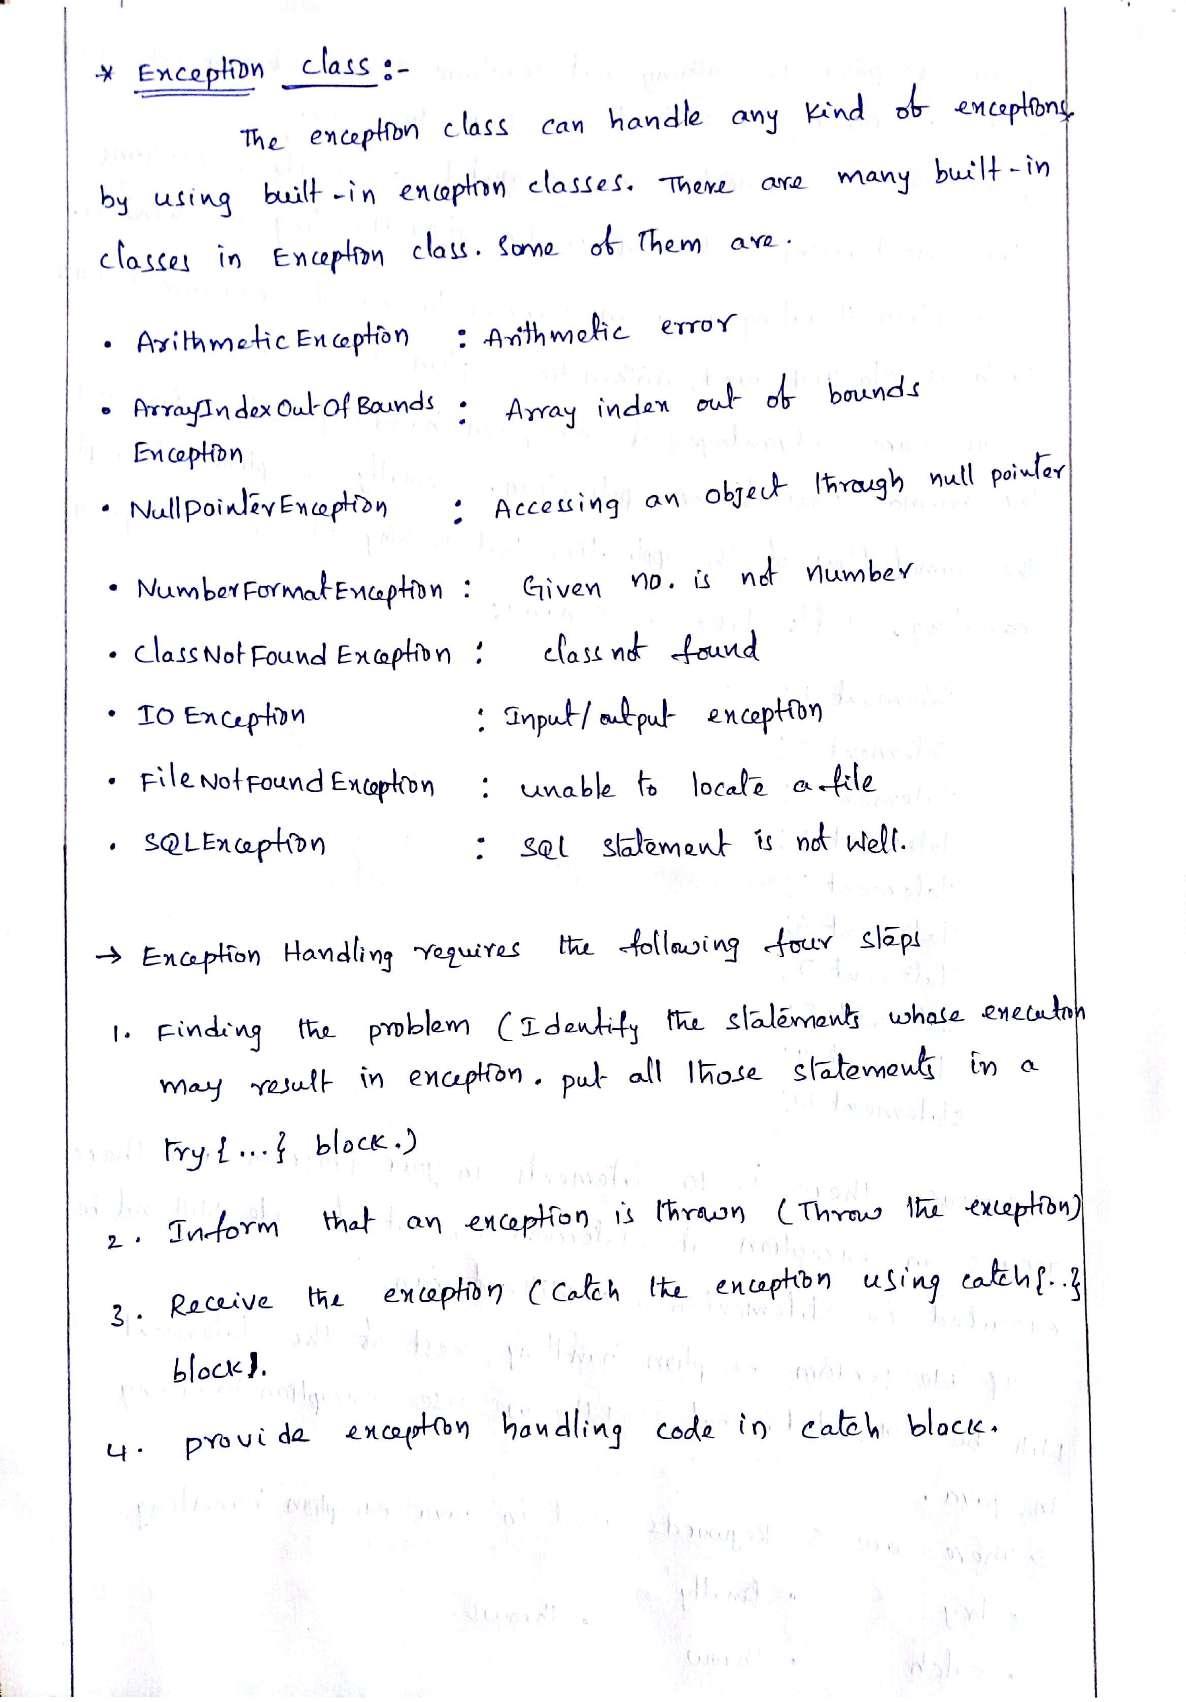 * Exception class :-
The exception class can handle any kind of exceptions
by using built-in exception classes. There are many built-in
classes in Exception class. Some of Them are.
• Arithmetic Exception : Arithmetic error
• ArrayIndexOutOfBounds : Array index out of bounds
Exception
• NullpointerException : Accessing an object through null pointer
• NumberFormatException : Given no. is not number
• ClassNotFound Exception : class not found
• IO Exception : Input/output exception
• FileNotFoundException : unable to locate a file
• SQLException : SQL statement is not well.
→ Exception Handling requires the following four steps
1. Finding the problem (Identify the statements whose execution
may result in exception. put all those statements in a
try {...} block.)
2. Inform that an exception is thrown (Throw the exception)
3. Receive the exception (Catch the exception using catch{..}
block).
4. provide exception handling code in catch block.